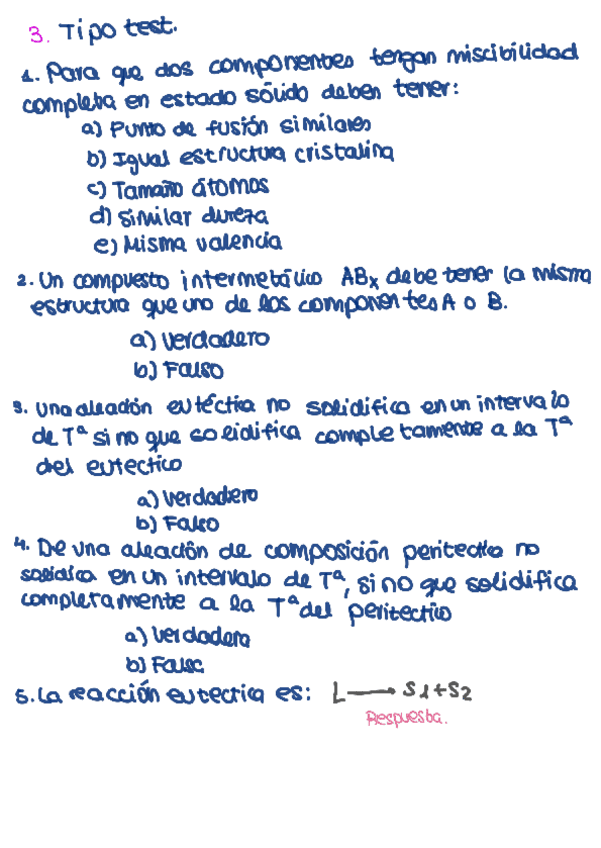 3. Tipo test.
1. Para que dos componentes tengan miscibilidad
completa en estado sólido deben tener:
a) Punto de fusión similares
b) Igual estructura cristalina
c) Tamaño átomos
d) similar dureza
e) Misma valencia
2. Un compuesto intermetálico ABx debe tener la misma
estructura que uno de los componentes A o B.
a) Verdadero
b) Falso
3. Una aleación eutéctica no solidifica en un intervalo
de Tª sino que solidifica completamente a la Tª
del eutectico
a) Verdadero
b) Falso
4. De una aleación de composición peritectica no
solidifica en un intervalo de Tª, sino que solidifica
completamente a la Tª del peritectico
a) Verdadera
b) Falsa
5. La reacción eutectica es: L → S1+S2
Respuesta.